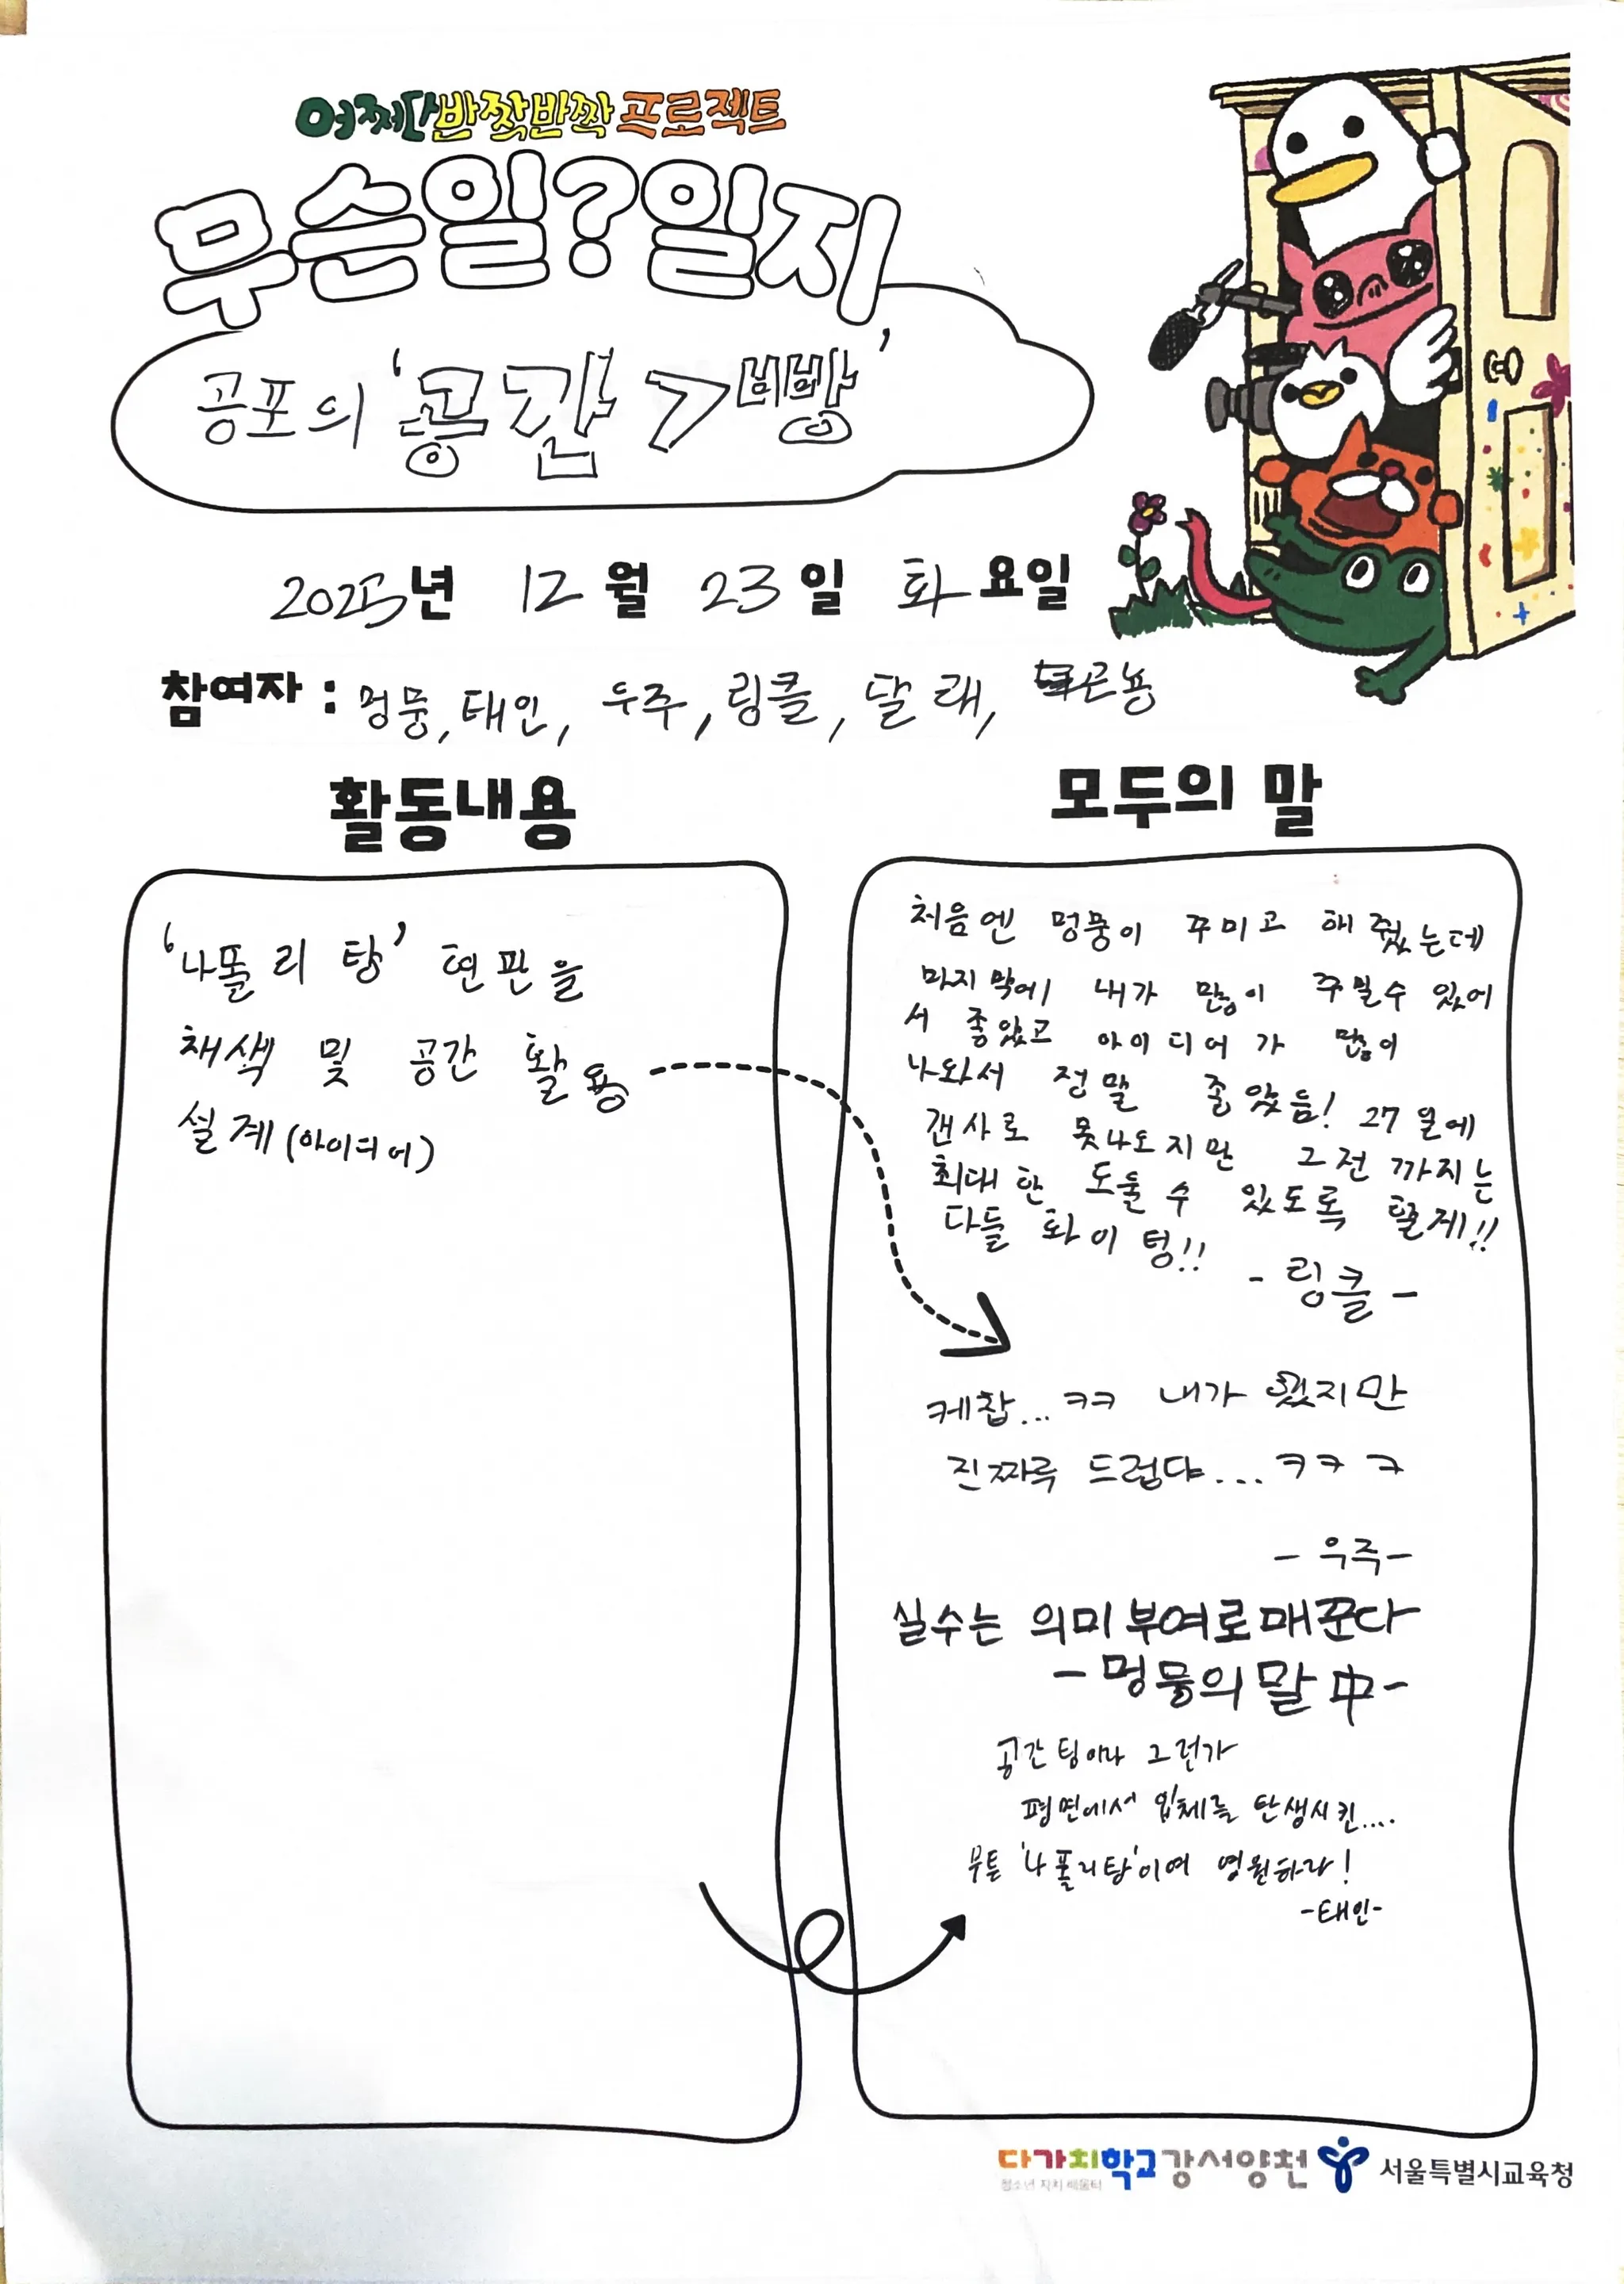 어쩌다반짝반짝프로젝트
무슨일?일지
공포의 '공간7삐빵'
2025년 12월 23일 화요일
참여자 : 멍뭉, 태인, 우주, 링클, 달래,
활동내용
'나폴리탕' 현판을
채색 및 공간 활용
설계(아이디어)
모두의 말
처음엔 멍뭉이 꾸미고 해줬는데
마지막에 내가 많이 꾸밀수 있어
서 좋았고 아이디어가 많이
나와서 정말 좋았음! 27일에
갠사로 못나오지만 그전까지는
최대한 도울 수 있도록 할게!!
다들 화이팅!!
- 링클 -
케찹...ㅋㅋ 내가 했지만
진짜루 드럽댜...ㅋㅋㅋ
- 우주-
실수는 의미부여로 매꾼다
- 멍뭉의 말 中-
공간팀이라 그런가
평면에서 입체를 탄생시킨....
무튼 '나폴리탕'이여 영원하라!
-태인-
다가치학교강서양천
청소년 자치 배움터
서울특별시교육청